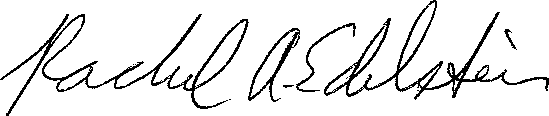 Rachel A. Edelstein